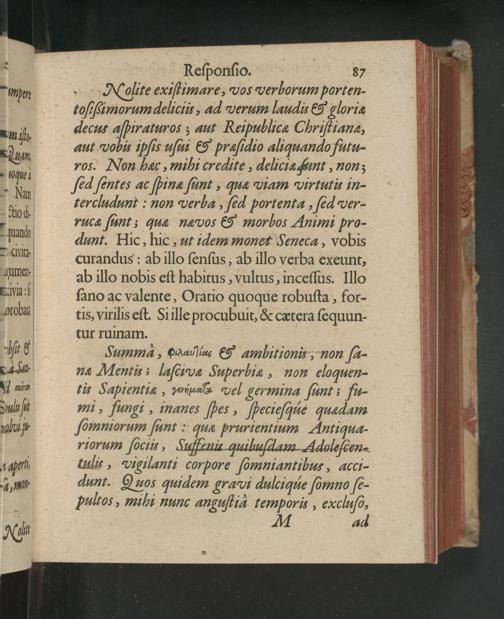 Responsio. 87
Nolite existimare, vos verborum porten-
tosissimorum deliciis, ad verum laudis & gloriæ
decus aspiraturos; aut Reipublicæ Christianæ,
aut vobis ipsis usui & præsidio aliquando futu-
ros. Non hæc, mihi credite, deliciæ sunt, non;
sed sentes ac spinæ sunt, quæ viam virtutis in-
tercludunt: non verba, sed portenta, sed ver-
rucæ sunt; quæ nævos & morbos Animi pro-
dunt. Hic, hic, ut idem monet Seneca, vobis
curandus: ab illo sensus, ab illo verba exeunt,
ab illo nobis est habitus, vultus, incessus. Illo
sano ac valente, Oratio quoque robusta, for-
tis, virilis est. Si ille procubuit, & cætera sequun-
tur ruinam.
Summâ, φιλαυλίας & ambitionis, non sa-
næ Mentis; lascivæ Superbiæ, non eloquen-
tis Sapientiæ, vel germina sunt; fu-
mi, fungi, inanes spes, speciesque quædam
somniorum sunt: quæ prurientium Antiqua-
riorum sociis, Suffenis quibusdam Adolescen-
tulis, vigilanti corpore somniantibus, acci-
dunt. Quos quidem gravi dulcique somno se-
pultos, mihi nunc angustiâ temporis, excluso,
M ad